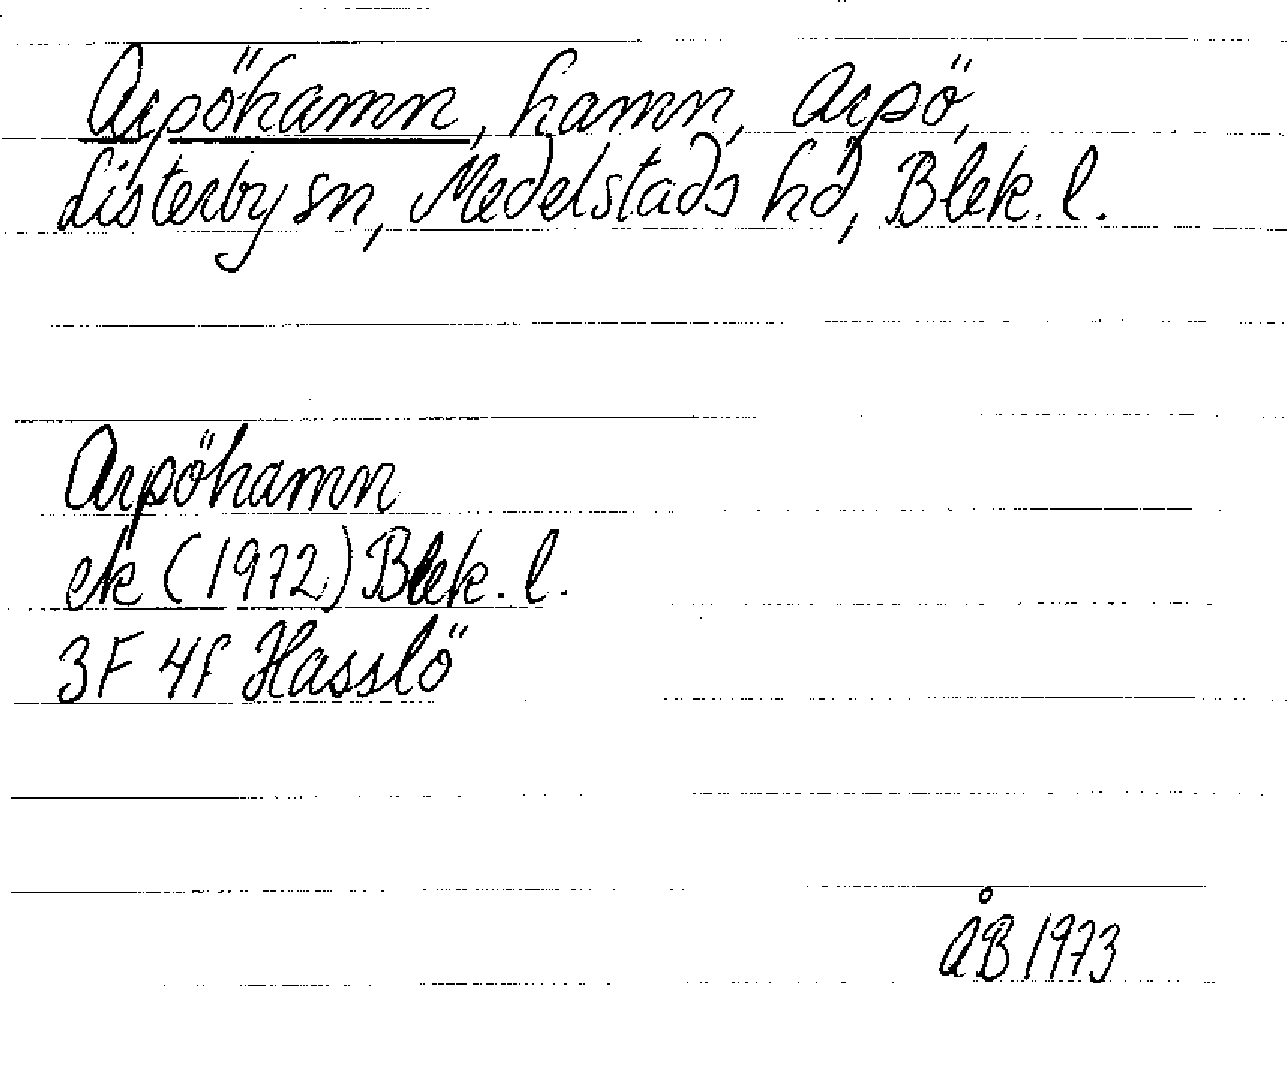 Arpöhamn, hamn, Arpö,
Listerby sn, Medelstads hd, Blek. l.
Arpöhamn
ek (1972) Blek. l.
3F 4f Hasslö
ÅB 1973